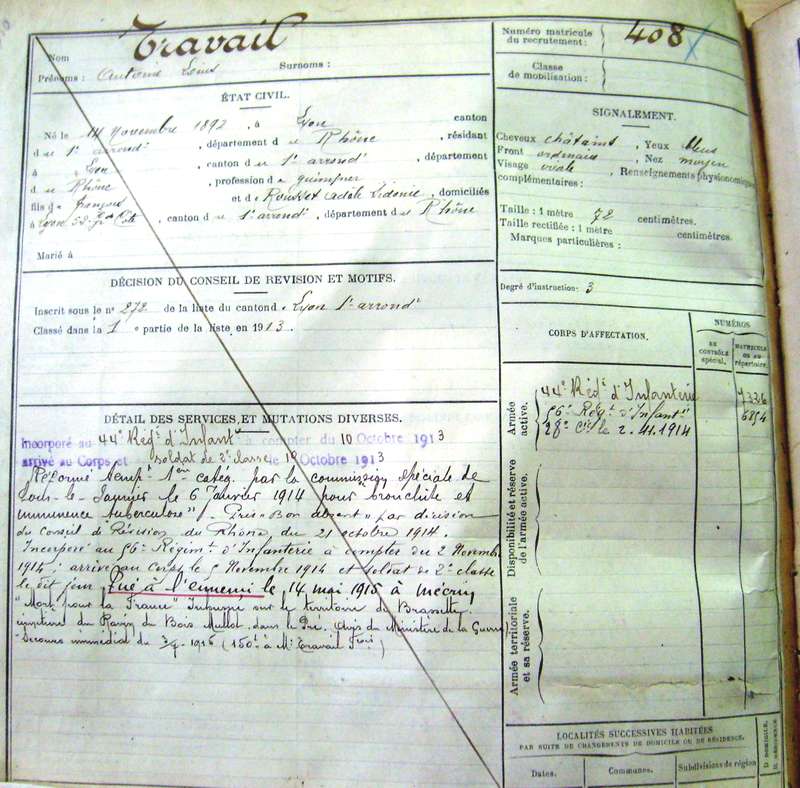 Travail
Nom
Prénoms : Antoine Louis Surnoms :
ÉTAT CIVIL.
Né le 14 novembre 1892, à Lyon canton
du 1er arrondt, département du Rhône, résidant
à Lyon, canton du 1er arrondt département
du Rhône, profession de guimpier
fils de françois et de Rousset Adèle Sidonie, domiciliés
à Lyon 52 Gde Côte, canton du 1er arrondt, département du Rhône
Marié à
DÉCISION DU CONSEIL DE REVISION ET MOTIFS.
Inscrit sous le n° 272 de la liste du canton de Lyon 1er arrondt
Classé dans la 1e partie de la liste en 1913.
DÉTAIL DES SERVICES ET MUTATIONS DIVERSES.
Incorporé au 44e Régt d'Infantie à compter du 10 Octobre 1913
arrivé au Corps et soldat de 2e classe le 10 Octobre 1913
Réformé tempre 1ère catég. par la commission spéciale de
Lons-le-Saunier le 6 Janvier 1914 pour "bronchite et
imminence tuberculose". Pris "Bon absent" par décision
du Conseil de Révision du Rhône du 21 octobre 1914.
Incorporé au 56e Régimt d'Infanterie à compter du 2 Novembre
1914; arrivé au Corps le Novembre 1914 et soldat de 2e classe
le dit jour. Tué à l'ennemi le 14 mai 1915 à Mécrin
"Mort pour la France" Inhumé sur le territoire de Brasseitte
cimetière du Ravin du Bois Mullot dans le Pré. Avis du Ministère de la Guerre
Secours immédiat de 1916 (150f à Mr Travail )
Numéro matricule
du recrutement : 408
Classe
de mobilisation :
SIGNALEMENT.
Cheveux châtains, Yeux bleus
Front ordinaire, Nez moyen
Visage ovale, Renseignements physionomiques
complémentaires :
Taille : 1 mètre 72 centimètres.
Taille rectifiée : 1 mètre centimètres.
Marques particulières :
Degré d'instruction : 3
CORPS D'AFFECTATION.
NUMÉROS
AU CONTRÔLE spécial.
MATRICULE OU AU répertoire.
Armée active.
44e Régt d'Infanterie 4336
56e Régt d'Infantie 6854
28e Cie le 2.11.1914
Disponibilité et réserve de l'armée active.
Armée territoriale et sa réserve.
LOCALITÉS SUCCESSIVES HABITÉES
PAR SUITE DE CHANGEMENTS DE DOMICILE OU DE RÉSIDENCE.
Dates. Communes. Subdivisions de région
D. DOMICILE.
R. RÉSIDENCE.